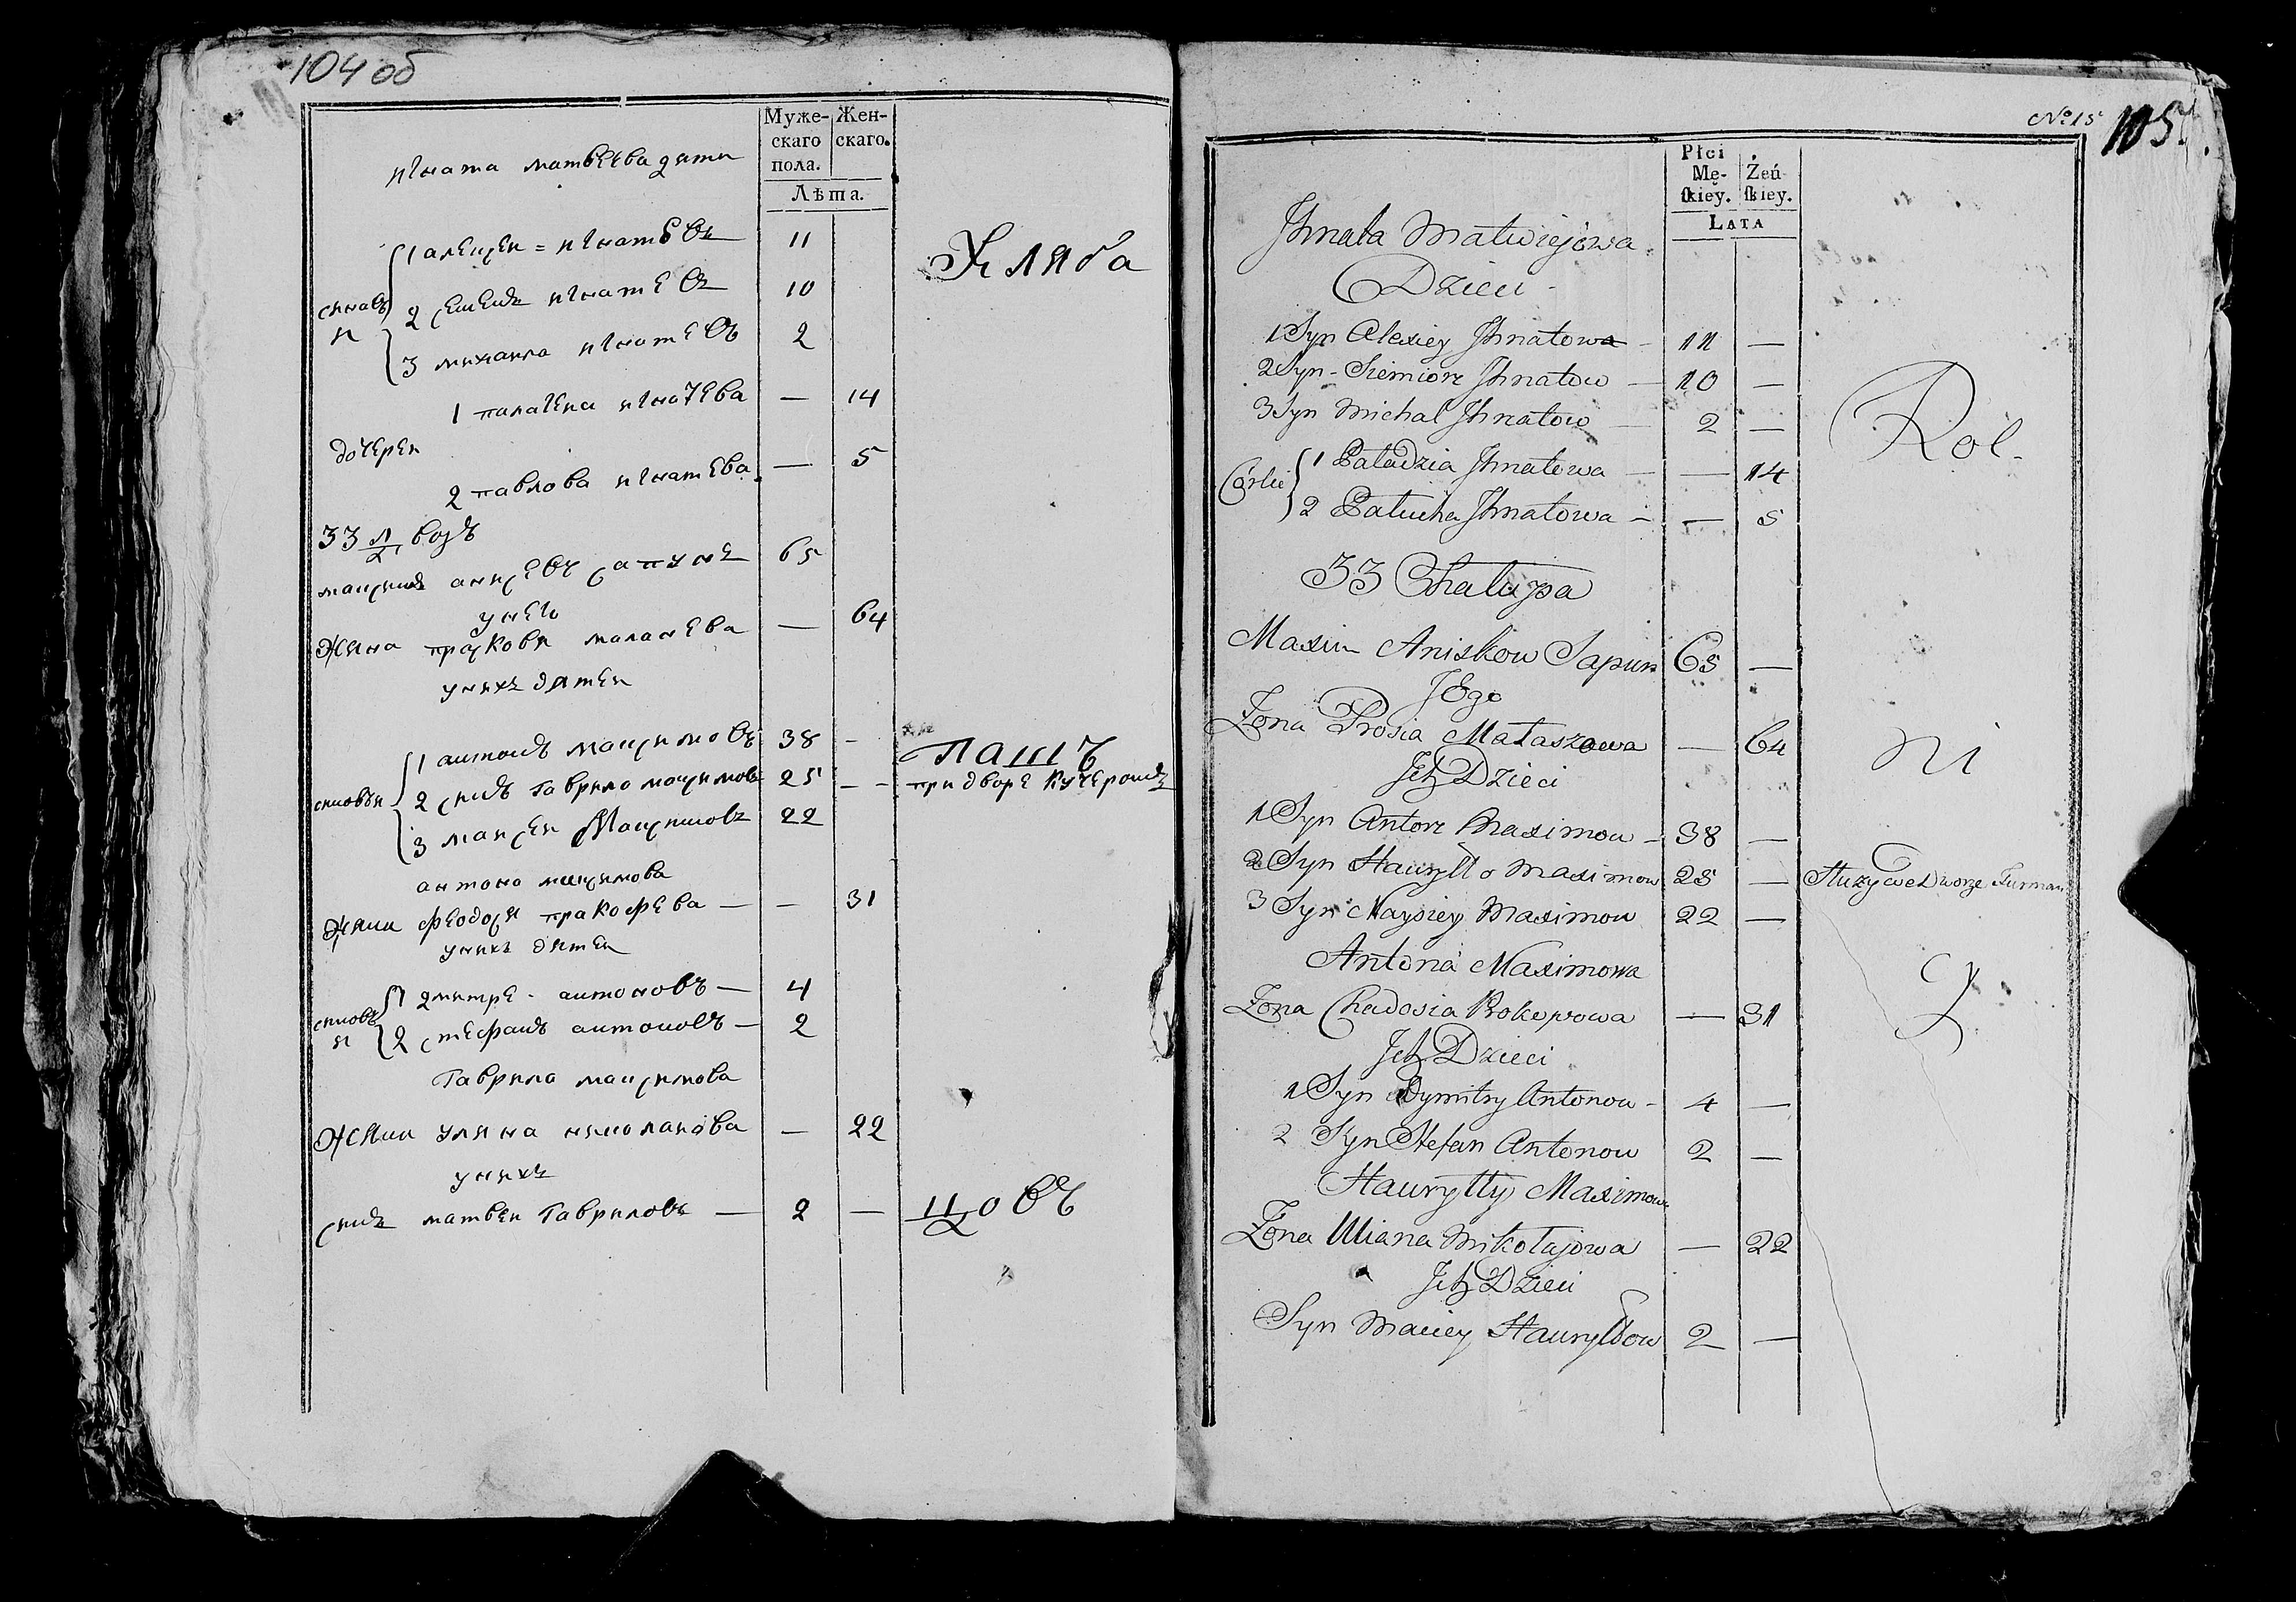 104 об
Муже-
скаго
пола.
Жен-
скаго.
Лѣта.
игната матвеева дети
сыновъ
и
1 алексеи = игнатевъ 11
Хляба
2 семенъ игнатевъ 10
3 михаила игнатевъ 2
1 палагеи игнатева — 14
дочереи
2 павлова игнатева — 5
33
максимъ анисевъ сапунъ 65
унего
жена прасковя маланева — 64
унихъ дятеи
сыновъи
1 антонъ максимовъ 38 -
пашъ
2 сынъ Гаврило максимовъ 25 - -
при дворе кучеромъ
3 маисеи Максимовъ 22
антона максимова
жена феодося пракофева — — 31
унихъ дятеи
сыновъ
и
1 дмитре - антоновъ — 4
2 стефанъ антоновъ — 2
Гаврила максимова
жена уляна николаиова — 22
унихъ
сынъ матвеи Гавриловъ — 2 —
цовъ
№ 15
105.
Płci
Mę-
skiey.
Żeń-
skiey.
LATA
Jhnata Matwiejowa
Dzieci -
1 Syn Alexiey Jhnatowa - 11 —
2 Syn - Siemion Jhnatow — 10 —
3 Syn Michal Jhnatow — 2 —
Rol-
Córki
1 Paladzia Jhnatowa — — 14
2 Palucha Jhnatowa - — 5
33 Chalupa
Maxim Aniskow Sapun 65 —
JEgo
Żona Prosia Mataszowa — 64
ni
Jch Dzieci
1 Syn Anton Maximow - 38 —
2 Syn Hauryllo Maximow 25 — Służy we Dworze Furman
3 Syn Maysiey Maximow 22 —
Antona Maximowa
Żona Chadosia Prokopowa — 31
Jch Dzieci
1 Syn Dymitry Antonow - 4 —
2 Syn Stefan Antonow 2 —
Hauryłły Maximowa
Żona Uliana Mikołajowa — 22
Jch Dzieci
Syn Maciey Hauryłłow 2 —